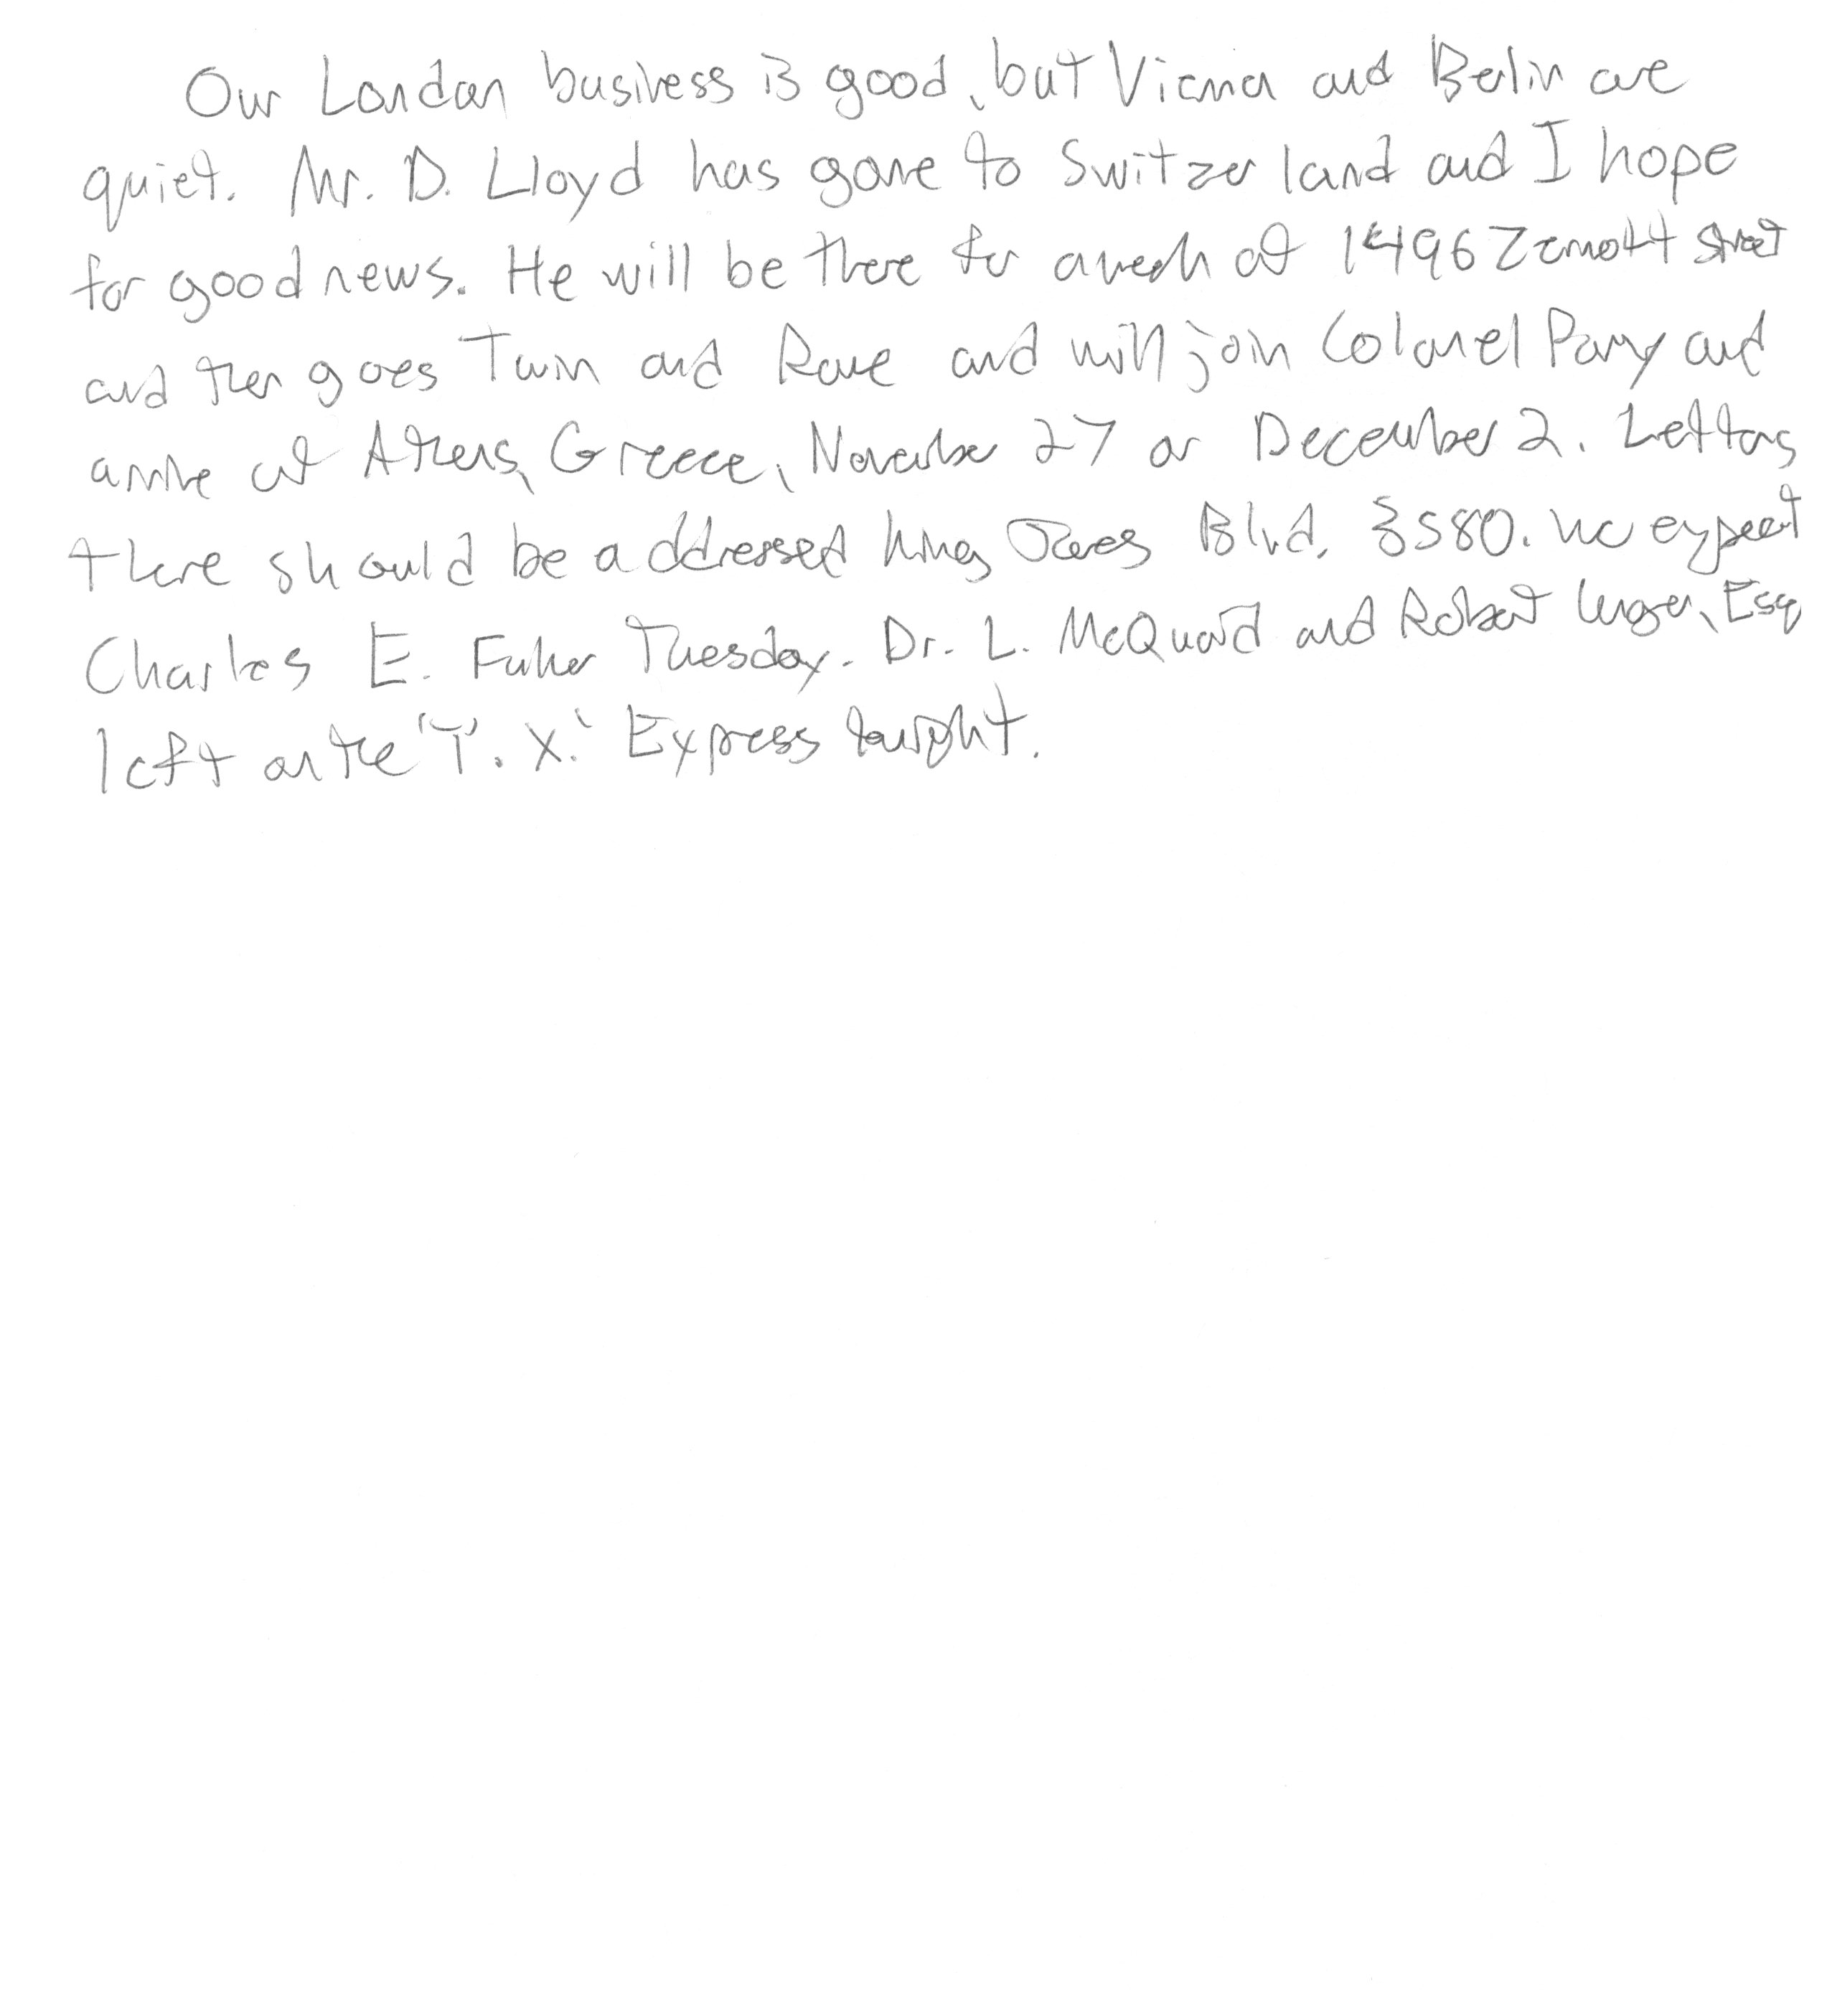 Our London business is good, but Vienna and Berlin are
quiet. Mr. D. Lloyd has gone to Switzerland and I hope
for good news. He will be there for a week at 1496 Zermott street
and then goes Turin and Rome and will join Colonel Parry and
arrive at Athens, Greece, November 27 or December 2. Letters
there should be addressed King James Blvd. 3580. We expect
Charles E. Fuller Tuesday. Dr. L. McQuaid and Robert Unger, Esq
left on the "T. X." Express tonight.